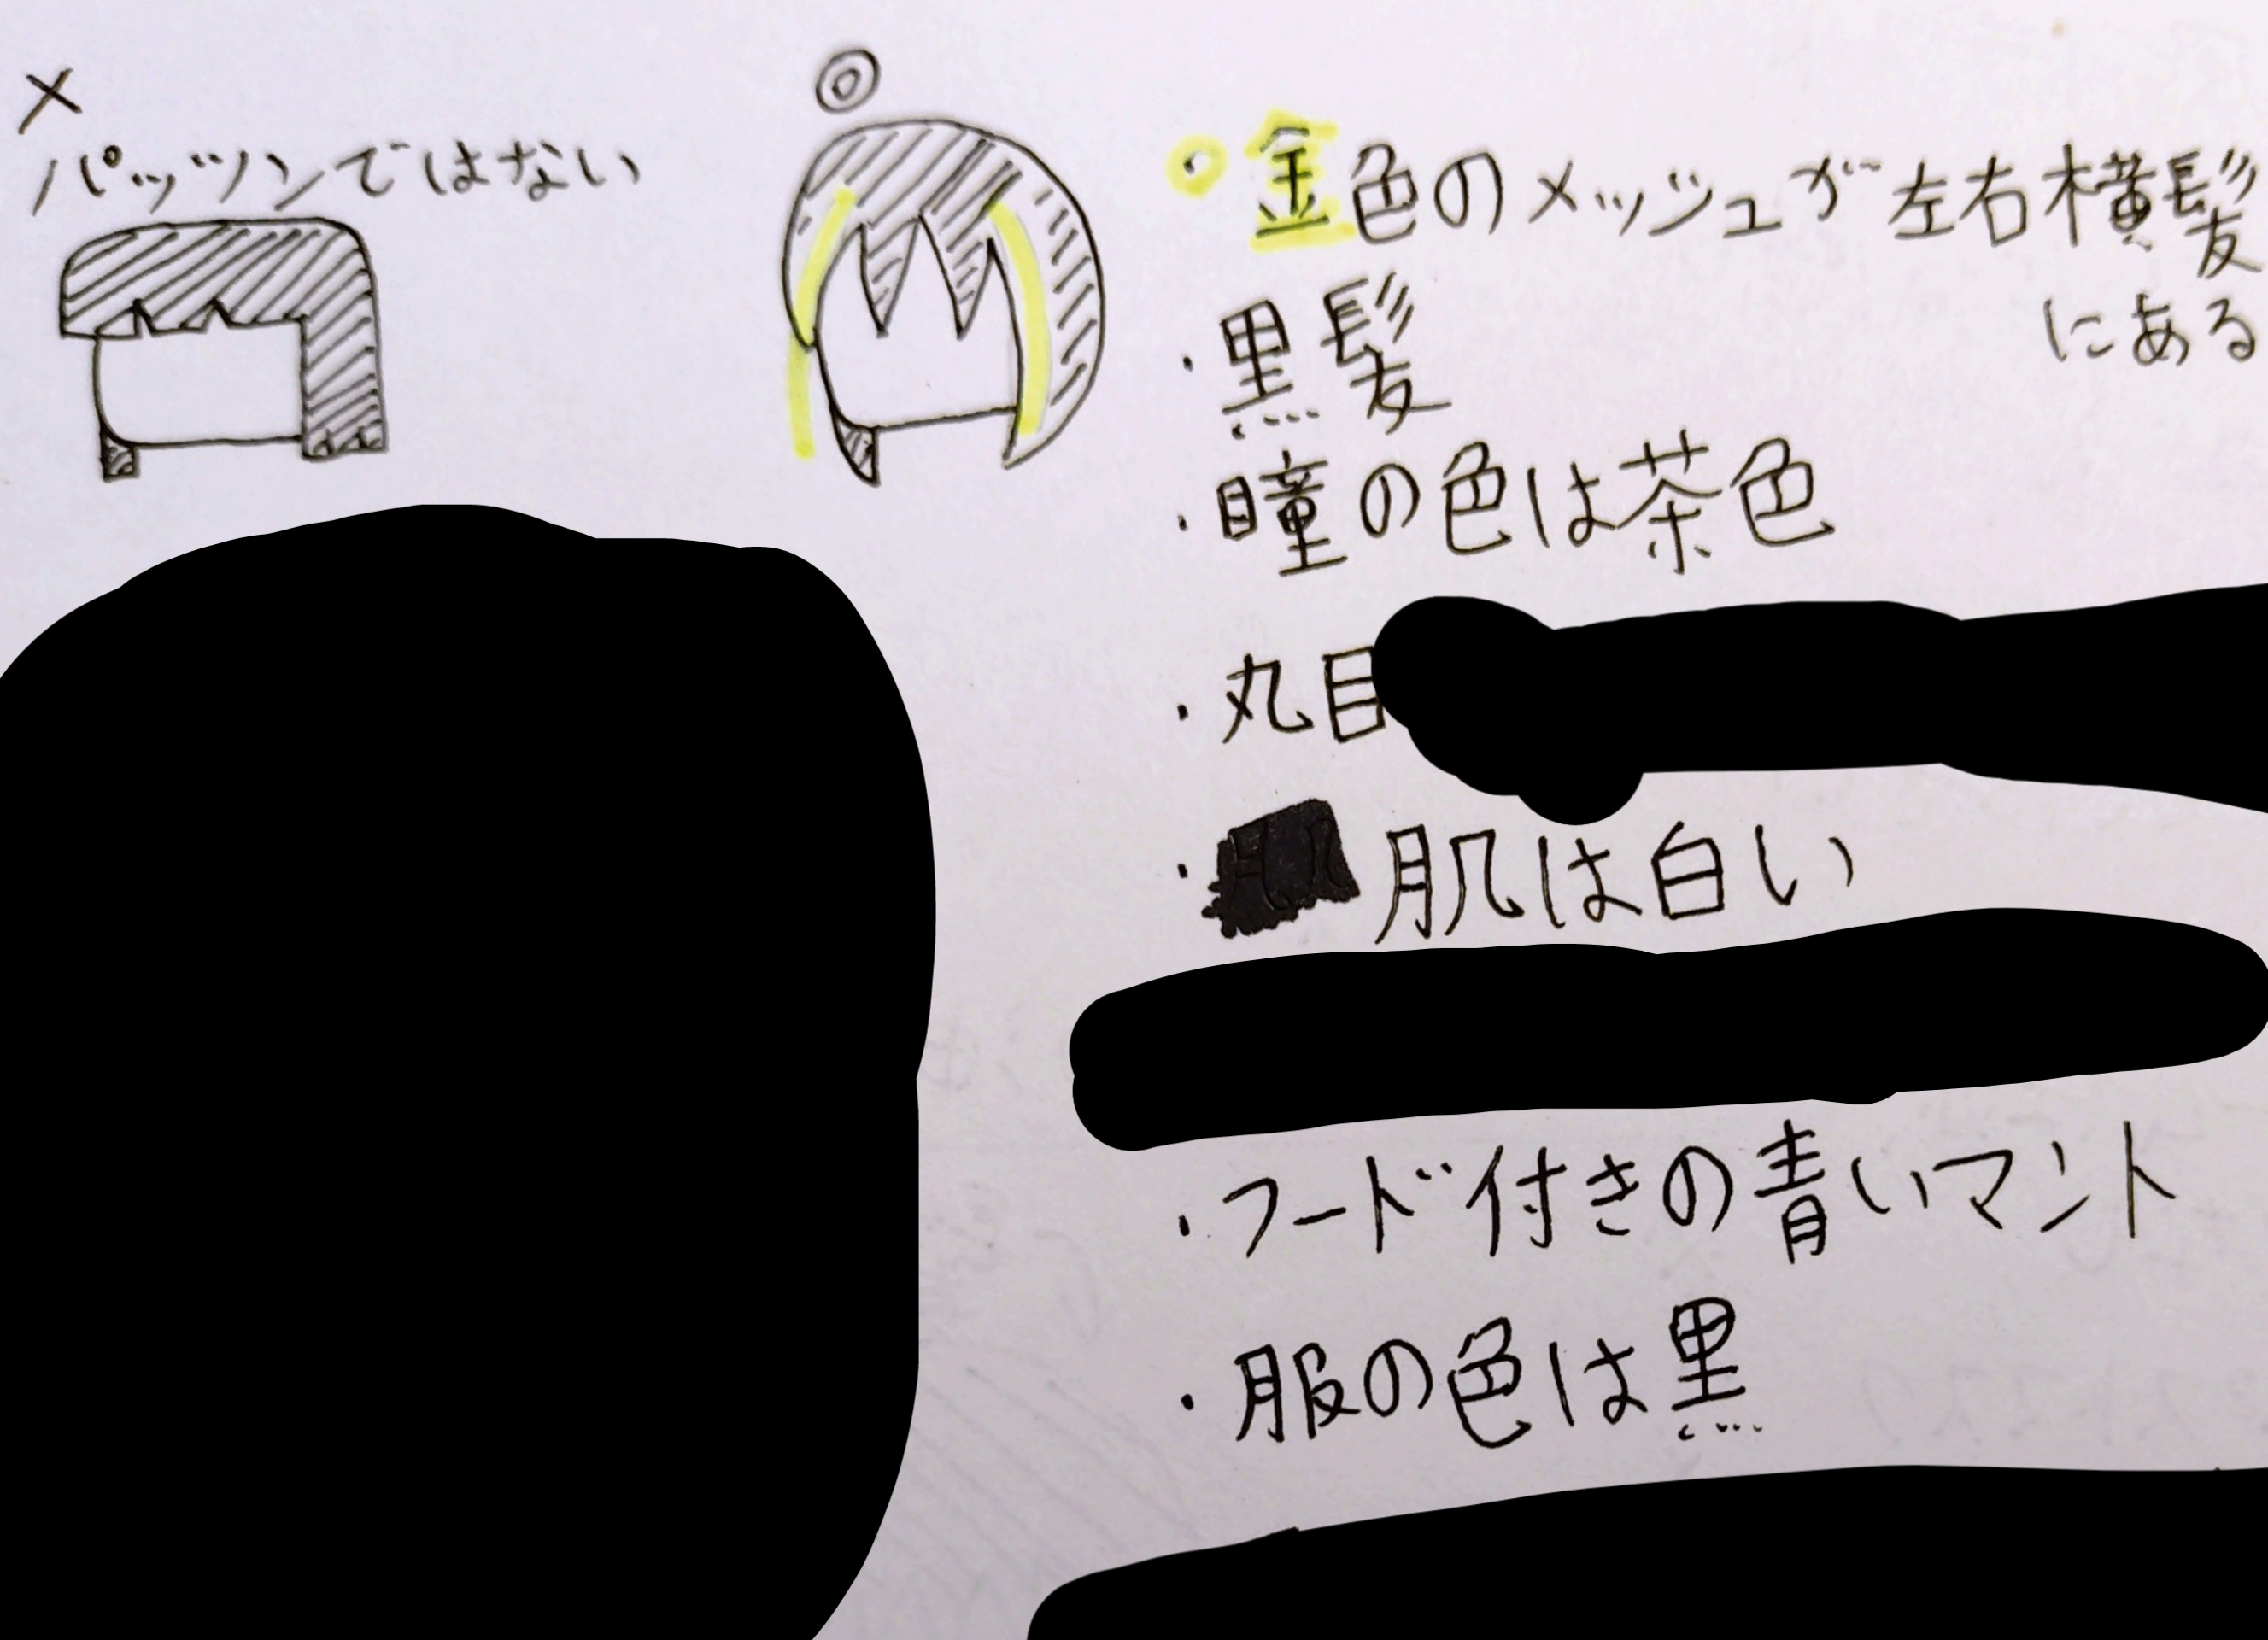 ×
パッツンではない
◎
・金色のメッシュが左右横髪
にある
・黒髪
・瞳の色は茶色
・丸目
・肌は白い
・フード付きの青いマント
・服の色は黒